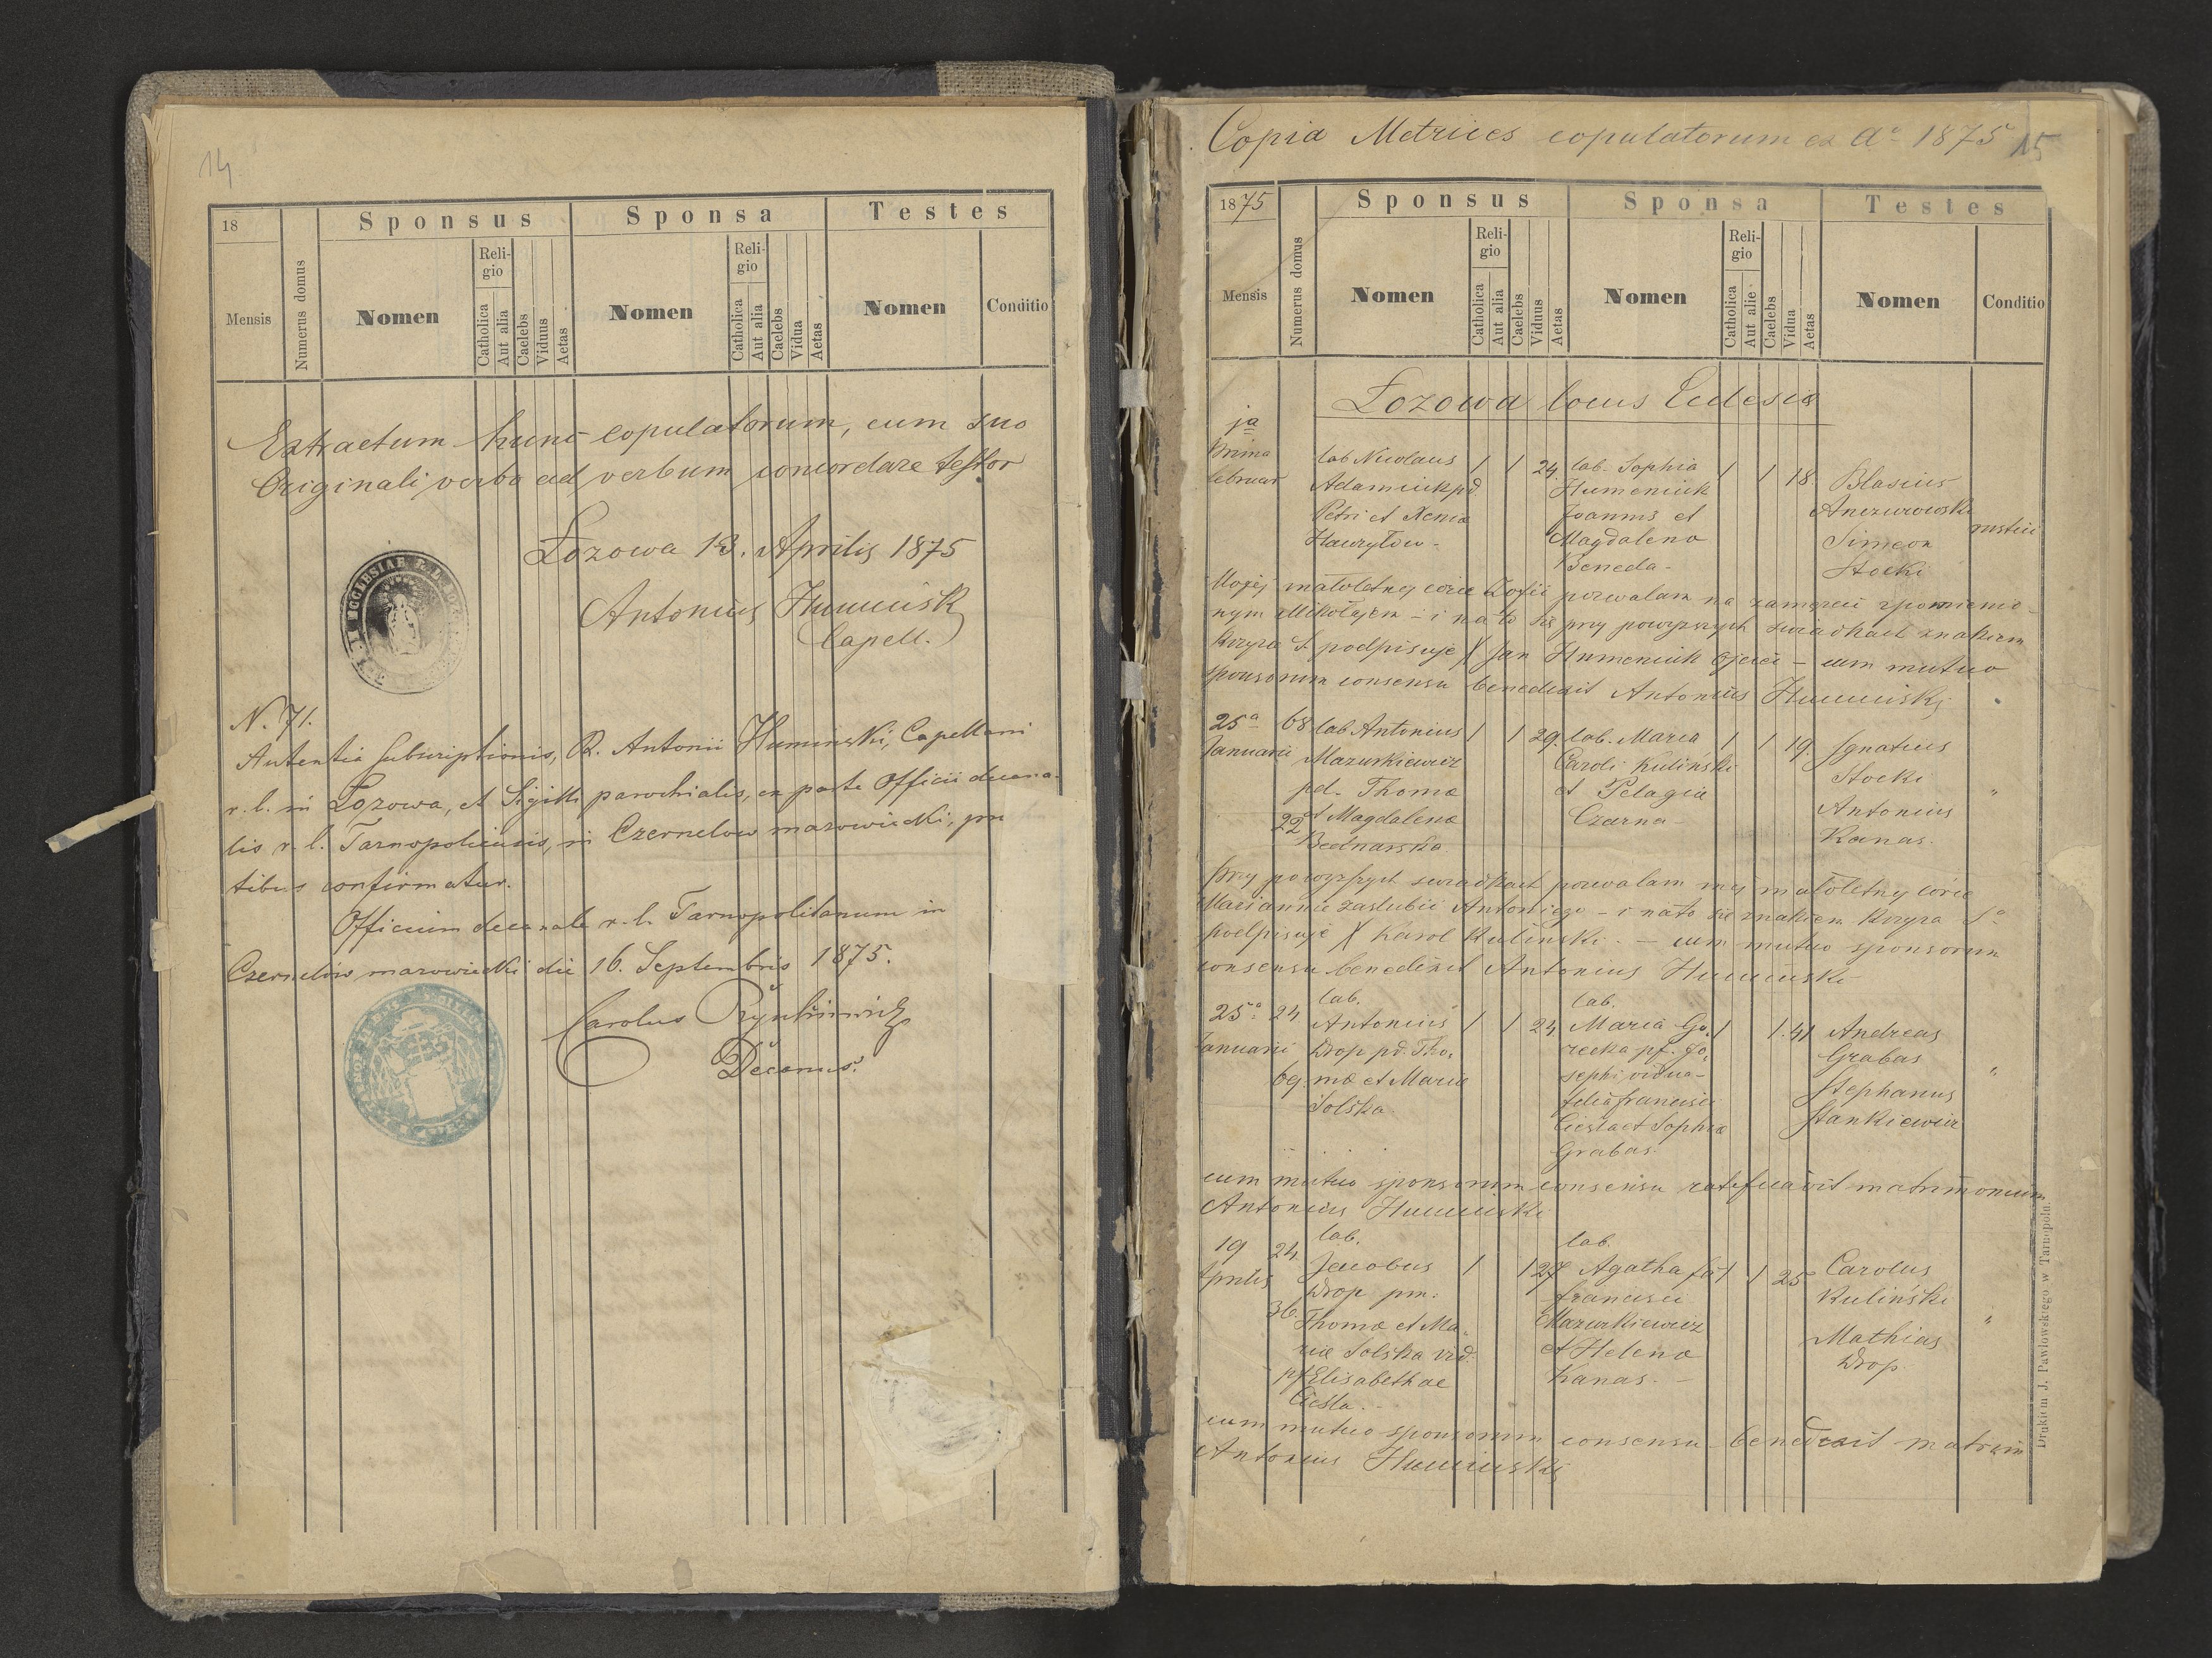 14
18
Sponsus
Sponsa
Testes
Mensis
Numerus domus
Nomen
Religio
Catholica
Aut alia
Caelebs
Viduus
Aetas
Nomen
Religio
Catholica
Aut alia
Caelebs
Vidua
Aetas
Nomen
Conditio
Extractum hunc copulatorum, cum suo
Originali verbo ad verbum concordare testor
Łozowa 13. Aprilis 1875
Antonius Humiński
Capell.
N. 71.
Autentia subscriptionis, R. Antonii Huminski, Capellani
r. l. in Łozowa, et Sigilli parochialis, ex parte Officii decana-
lis r. l. Tarnopoliensis, in Czernelow mazowiecki, pre
tibus confirmatur.
Officium decanale r. l. Tarnopolitanum in
Czernelów mazowiecki die 16. Septembris 1875.
Carolus
Decanus.
Copia Metrices copulatorum ex Ao 1875
15
1875
Sponsus
Sponsa
Testes
Mensis
Numerus domus
Nomen
Religio
Catholica
Aut alia
Caelebs
Viduus
Aetas
Nomen
Religio
Catholica
Aut alie
Caelebs
Vidua
Aetas
Nomen
Conditio
Łozowa locus Eclesiæ
ja
Prima
Februar
lab Nicolaus
Adamciuk pd
Petri et Xenia
Hawryłów -
1 1 24
lab. Sophia
Humeniuk
Joannis et
Magdalena
Beneda -
1 1 18.
Blasius
Simeon
Stocki
rustici
Mojej małoletnej córce Zofii pozwalam na zamęzcie zpomienio-
nym Mikołajem - i na to się przy powyzszych swiadkach znakiem
Krzyza S podpisuje X Jan Humeniuk ojciec - cum mutuo
sponsorum consensu benedixit Antonius Humiński
25a
Januarii
68
22
lab Antonius
Mazurkiewicz
pd. Thoma
et Magdalena
Bednarska
1 1 29.
lab. Maria
Caroli Kuliński
et Pelagia
Czarna -
1 1 19.
Ignatius
Stocki
Antonius
Kanas.
"
przy powyzszych swiadkach pozwalam mej małoletney córce
Mariannie zaslubić Antoniego - i nato sie znakiem krzyza So
podpisuje X Karol Kulinski. - cum mutuo sponsorum
consensu benedixit Antonius Humiński
25a
Januarii
24
69.
lab.
Antonius
Drop pd. Tho-
mæ et Maria
Solska
1 1 24
lab.
Maria Go-
recka pf. Jo-
sephi vidua -
filia francisci
Ciesla et Sophia
Grabas
1 1. 41
Andreas
Grabas
Stephanus
Stankiewicz
"
cum mutuo sponsorum consensu ratificavit matrimonium
Antonius Humiński
19
Aprilis
24
36.
lab.
Jacobus
Drop pm.
Thoma et Ma-
riæ Solska vid.
pf Elisabethae
Ciesla.
1 1 27
lab.
Agatha fa
francisci
Mazurkiewicz
et Helena
Kanas. -
1 1 25
Carolus
Kuliński
Mathias
Drop.
"
cum mutuo sponsorum consensu benedixit matrim
Antonius Humiński
Drukiem J. Pawłowskiego w Tarnopolu.